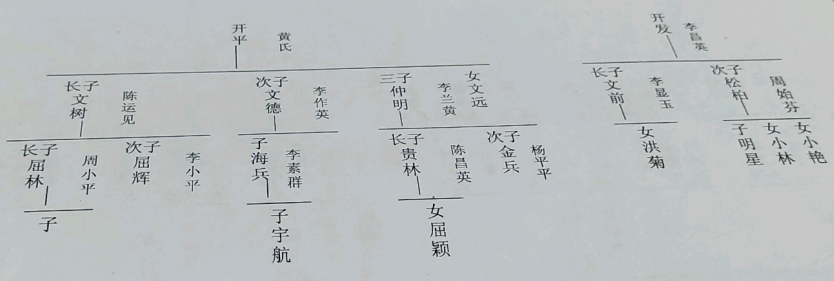 开平
黄氏
长子文树
陈运见
次子文德
李作英
三子仲明
李兰黄
女文远
长子屈林
周小平
次子屈辉
李小平
子海兵
李素群
长子贵林
陈昌英
次子金兵
杨平平
子
子宇航
女屈颖
开发
李昌英
长子文前
李显玉
次子松柏
周始芬
女洪菊
子明星
女小林
女小艳